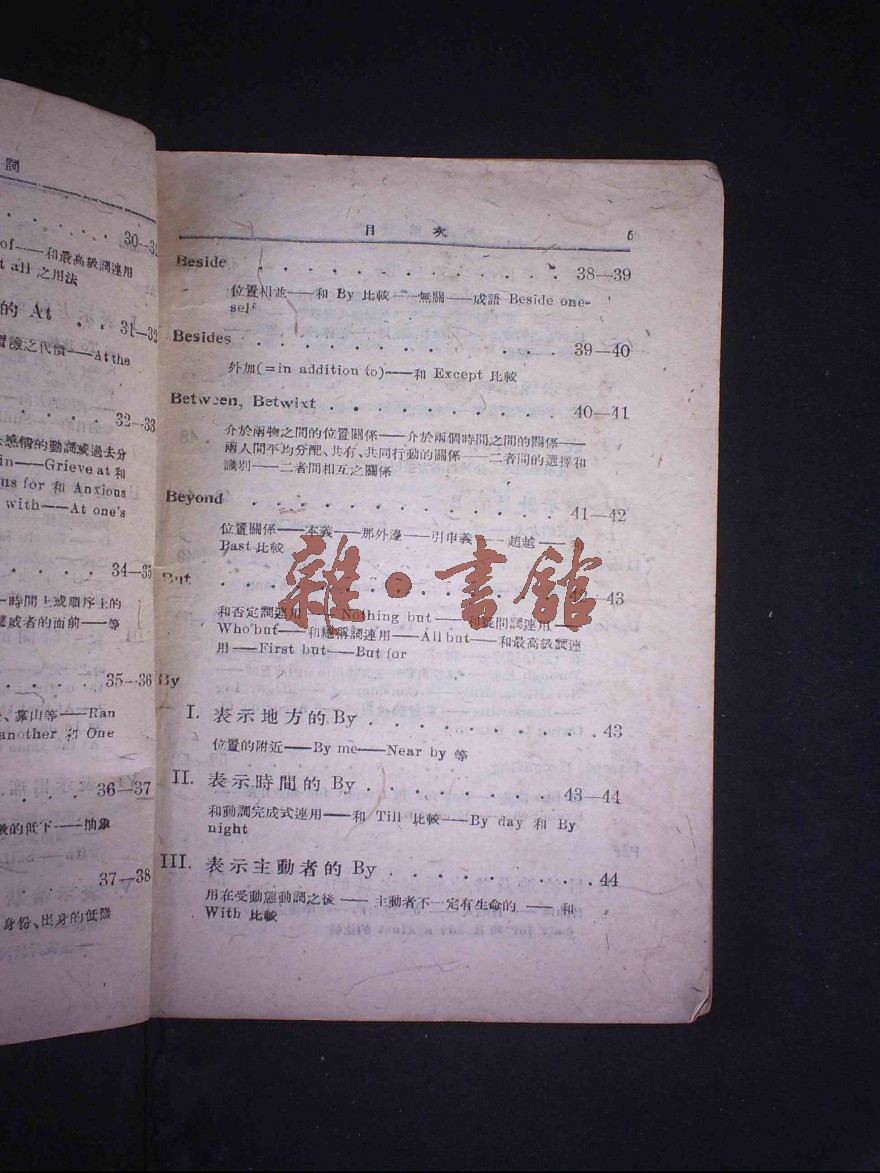 詞
30—31
of——和最高級詞連用
t all 之用法
的 At . . 31—32
冒險之代價——At the
32—33
感情的動詞或過去分
in——Grieve at 和
us for 和 Anxious
with——At one's
34—35
時間上或順序上的
或者的面前——等
35—36
、靠山等——Ran
another 和 One
36—37
的低下——抽象
37—38
身份、出身的低微
目 次 5
Beside . . . . . . . . . . . . . 38—39
位置相並——和 By 比較——無關——成語 Beside one-
self
Besides . . . . . . . . . . . . . 39—40
外加(=in addition to)——和 Except 比較
Between, Betwixt . . . . . . . . . . 40—41
介於兩物之間的位置關係——介於兩個時間之間的關係——
兩人間平均分配、共有、共同行動的關係——二者間的選擇和
識別——二者間相互之關係
Beyond . . . . . . . . . . . . . 41—42
位置關係——本義——那外邊——引申義——超越——和
Past 比較
But . . . . . . . . . . . . . 42—43
和否定詞連用——Nothing but——和疑問詞連用——
Who but——和總稱詞連用——All but——和最高級詞連
用——First but——But for
By
I. 表示地方的 By . . . . . . . . . 43
位置的附近——By me——Near by 等
II. 表示時間的 By . . . . . . . . 43—44
和動詞完成式連用——和 Till 比較——By day 和 By
night
III. 表示主動者的 By . . . . . . . . 44
用在受動態動詞之後——主動者不一定有生命的——和
With 比較
雜·書館